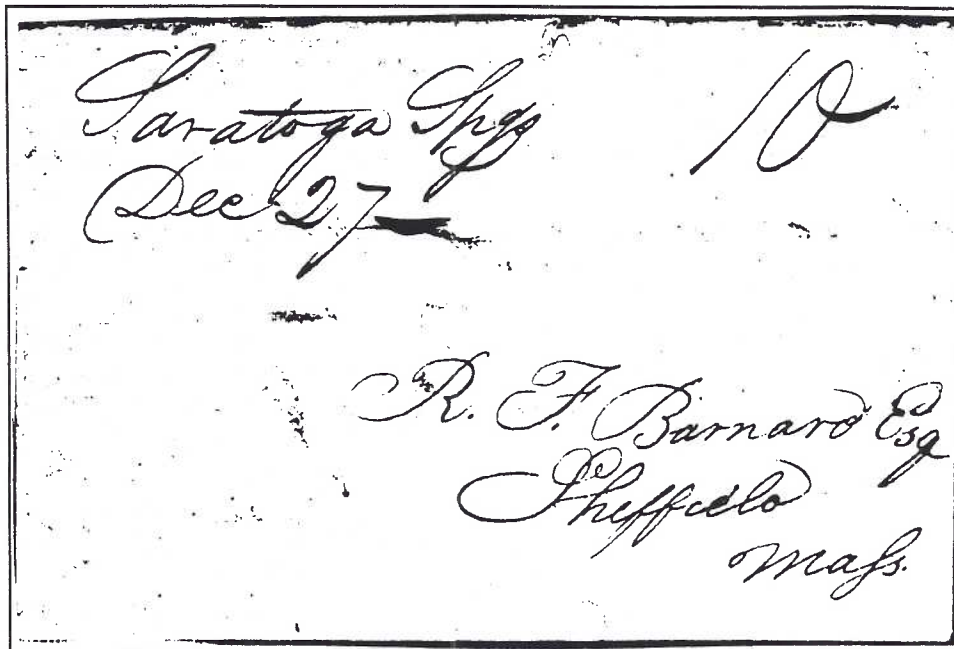 Saratoga Spgs
Dec 27
10
R. F. Barnard Esq
Sheffield
Mass.